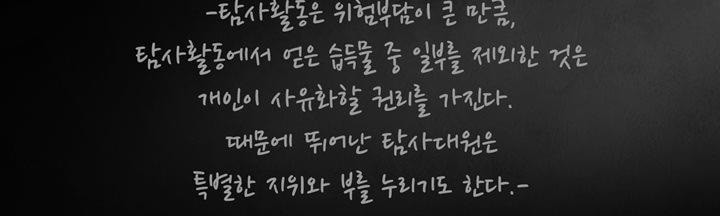 -탐사활동은 위험부담이 큰 만큼,
탐사활동에서 얻은 습득물 중 일부를 제외한 것은
개인이 사유화할 권리를 가진다.
때문에 뛰어난 탐사대원은
특별한 지위와 부를 누리기도 한다.-